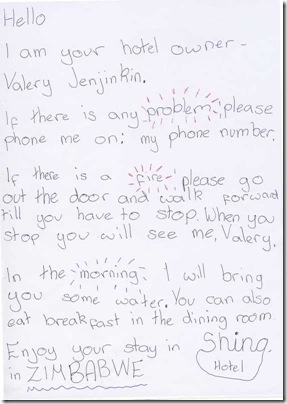 Hello
I am your hotel owner -
Valery Jenjinkin.
If there is any problem please
phone me on: my phone number.
If there is a fire please go
out the door and walk forward
till you have to stop. When you
stop you will see me, Valery.
In the morning I will bring
you some water. You can also
eat breakpast in the dining room.
Enjoy your stay in Shing
Hotel
in ZIMBABWE